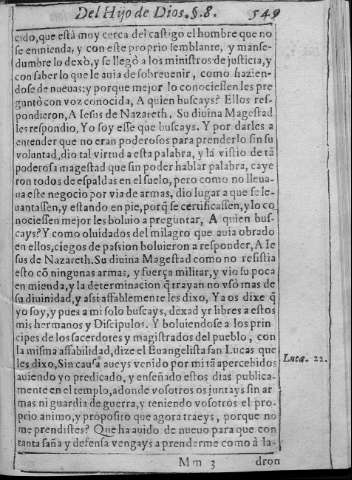 Del Hijo de Dios. §. 8. 549
cido, que està muy cerca del castigo el hombre que no
se enmienda, y con este proprio semblante, y manse-
dumbre lo dexò, y se llegò a los ministros de justicia, y
con saber lo que le auia de sobreuenir, como hazien-
dose de nueuas; y porque mejor lo conociessen les pre
guntò con voz conocida, A quien buscays? Ellos res-
pondieron, A Iesus de Nazareth, Su diuina Magestad
les respondio, Yo soy esse que buscays. Y por darles a
entender que no eran poderosos para prenderlo sin su
voluntad, dio tal virtud a esta palabra, y la vistio de tã
poderosa magestad que sin poder hablar palabra, caye
ron todos de espaldas en el suelo, pero como no lleua-
ua este negocio por via de armas, dio lugar a que se le-
uantassen, y estando en pie, porq̃ se certificassen, y lo co
nociessen mejor les boluio a preguntar, A quien bus-
cays? Y como oluidados del milagro que auia obrado
en ellos, ciegos de passion boluieron a responder, A Ie
sus de Nazareth. Su diuina Magestad como no resistia
esto cõ ningunas armas, y fuerça militar, y vio su poca
enmienda, y la determinacion q̃ trayan no vsò mas de
su diuinidad, y assi affablemente les dixo, Ya os dixe q̃
yo soy, y pues a mi solo buscays, dexad yr libres a estos
mis hermanos y Discipulos. Y boluiendose a los prin
cipes de los sacerdotes y magistrados del pueblo, con
la misma affabilidad, dize el Euangelista san Lucas que
les dixo, Sin causa aueys venido por mi tã apercebidos
auiendo yo predicado, y enseñado estos dias publica-
mente en el templo, adonde vosotros os juntays sin ar
mas ni guardia de guerra, y teniendo vosotros el pro-
prio animo, y proposito que agora traeys, porque no
me prendistes? Que ha auido de nueuo para que con
tanta saña y defensa vengays a prenderme como à la-
Luca. 22.
Mm 3 dron